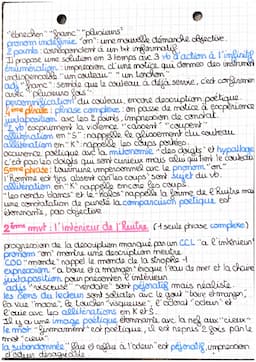 "ébrécher" "franc" "plusieurs"
pronom indéfinie "on" une nouvelle démarche objective.
2 points : correspondent à un txt informatif
Il propose une solution en 3 temps avec 3 vb d'action à l'infinitif
énumération : impression d'une notice qui donne des instruments
indispensable "un couteau" "un torchon"
adj "franc" semble que le couteau a déjà servie, c'est
"plusieurs fois"
personnification du couteau. encore description poétique
4ème phrase : phrase complexe. on passe de modèle à
juxtaposition avec les 2 points, impression de constat
2 vb expriment la violence "cassent" "coupent"
allitération en "S" : rappelle le glissement du couteau
allitération en "K" : rappelle les coups portés.
ouvrante poétique avec la métonymie "des doigts" et hypallage
C'est pas les doigts qui sont curieux mais celui qui tient le couteau
5ème phrase : tournure impersonnel avec le pronom "on"
l'homme est tjrs absent car les coups sont sujet du vb.
allitération en "K" rappelle encore les coups
"les ronds blancs" et le "halos" rappelle la forme de l'huître mais
une connotation de pureté la comparaison poétique est
étonnante, pas objective
2ème mvt : l'intérieur de l'huître (1 seule phrase complexe)
progression de la description marqué par un CCL "à l'intérieur"
pronom "on" montre une description neutre
COD "monde" rappel le monde de la strophe 1
expression "à boire et à manger" évoque l'eau de mer et la chaire
juxtaposition pour présenter l'intérieur
adjs "visqueux" "verdâtre" sont péjoratif mais réaliste.
les sens du lecteur sont sollicités avec le goût "boire et manger",
la vue "mare", le toucher "visqueux", l'odorat "odeur" et
l'ouïe avec les allitérations en K et S.
Il y a une image poétique étonnante avec la nef avec "cieux"
le mot "firmament" est poétique, il est repris 2 fois par le
mot "cieux"
la subordonnée "flue et reflue à l'odeur" est péjoratif, impression
d'odeur désagréable